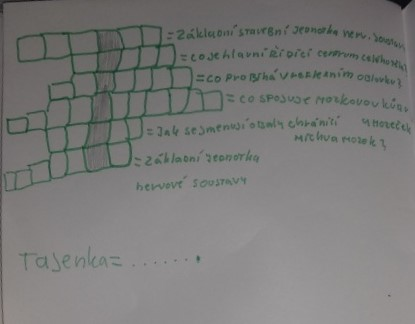 = Základní stavební jednotka nerv. soustavy
= co je hlavní řídící centrum celého těla?
= co probíhá v
= co spojuje mozkovou kůru
= Jak se jmenují obaly chránící
Mozeček
Mícha a mozek?
= Základní jednotka
nervové soustavy
Tajenka= . . . . . .